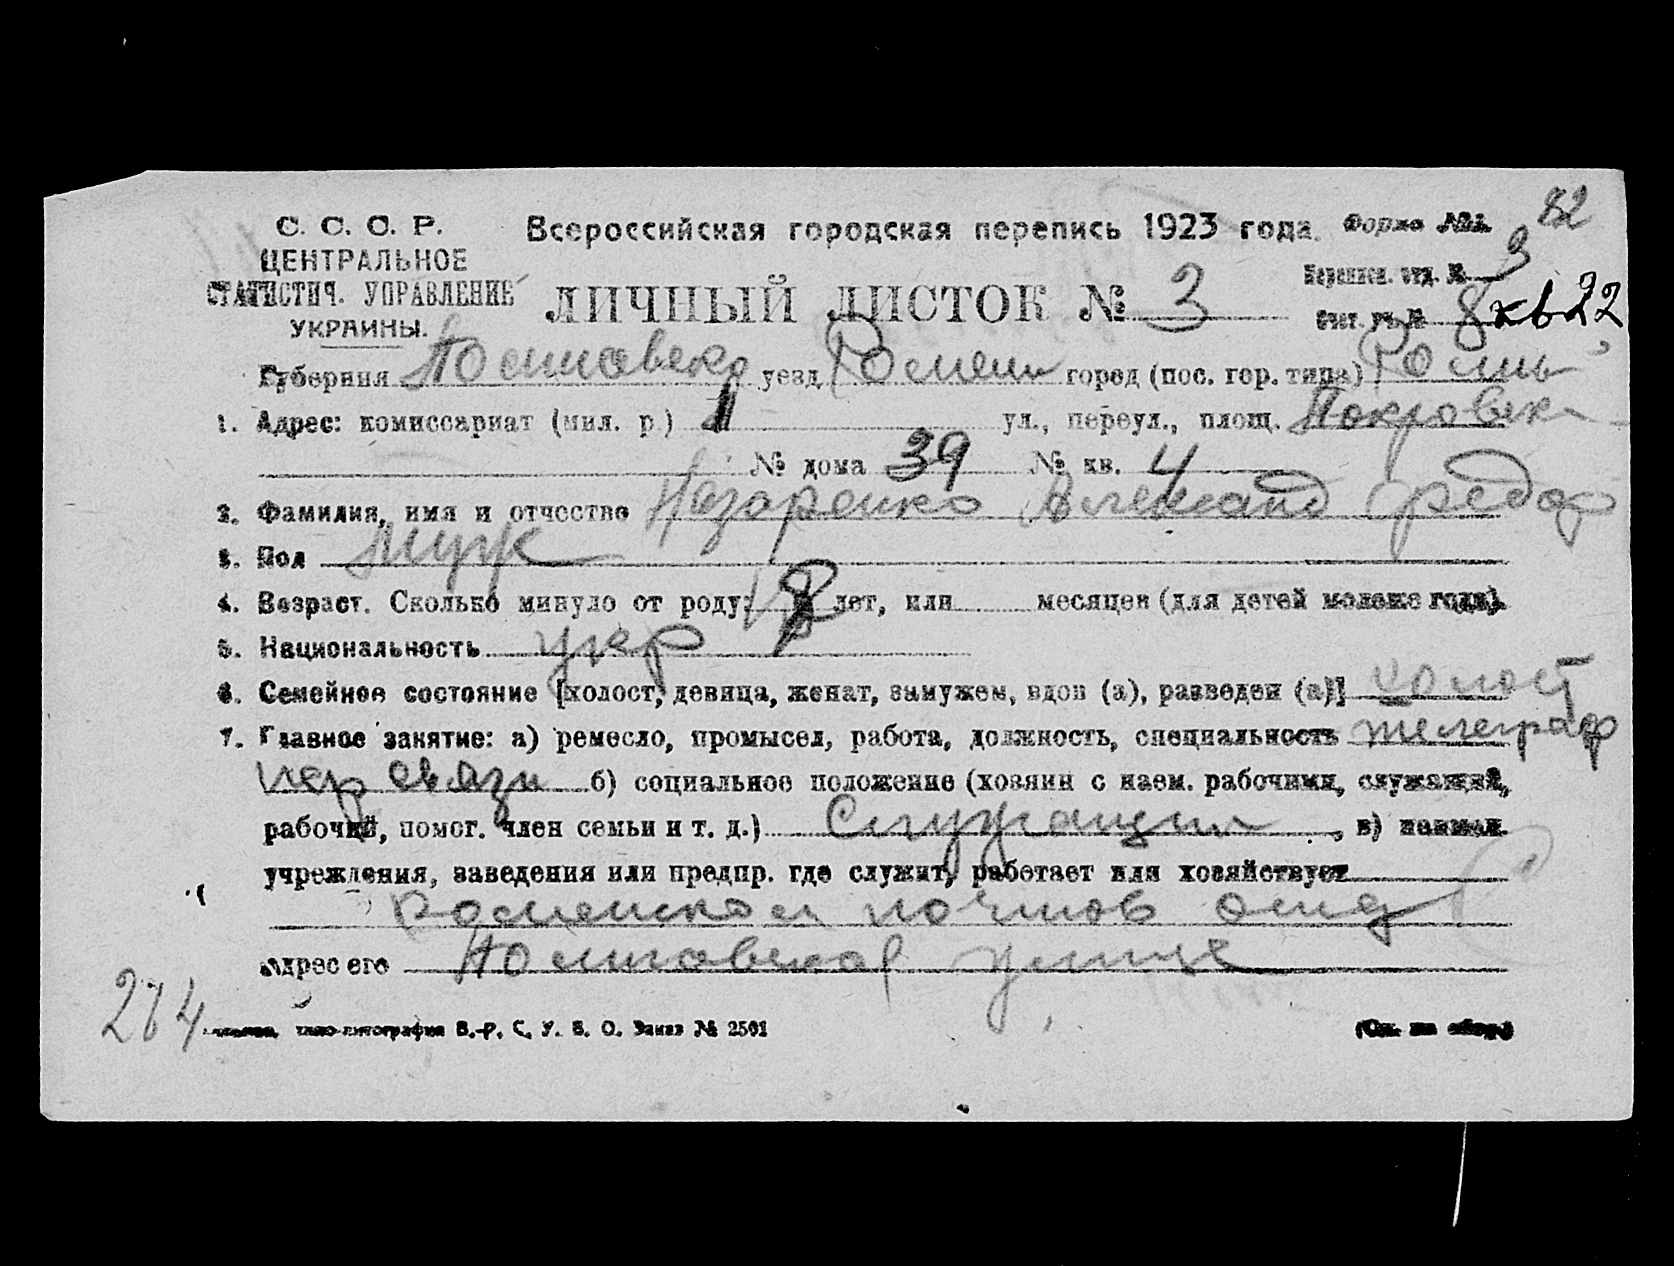 82
С. С. С. Р. Всероссийская городская перепись 1923 года. Форма №1.
ЦЕНТРАЛЬНОЕ
СТАТИСТИЧ. УПРАВЛЕНИЕ
УКРАИНЫ.
ЛИЧНЫЙ ЛИСТОК № 3
Переписн. отд. № 3
Счет. уч. № 8 кв 22
Губерния Полтавско уезд Ромени город (пос. гор. типа) Ромны
1. Адрес: комиссариат (мил. р.) 1 ул., переул., площ. Покровск
№ дома 39 № кв. 4
2. Фамилия, имя и отчество Назаренко Александ Федор
3. Пол Муж
4. Возраст. Сколько минуло от роду: 18 лет, или месяцев (для детей моложе года).
5. Национальность укр
6. Семейное состояние [холост, девица, женат, замужем, вдов (а), разведен (а)] холост
7. Главное занятие: а) ремесло, промысел, работа, должность, специальность телеграф
связи б) социальное положение (хозяин с наем. рабочими, служащий,
рабочий, помог. член семьи и т. д.) Служащий, в) наимен.
учреждения, заведения или предпр. где служит, работает или хозяйствует
Роменском почтов отд
Адрес его Полтавская улице
264
типо-литография В.-Р. С. У. В. О. Заказ № 2501 (См. на обор.)